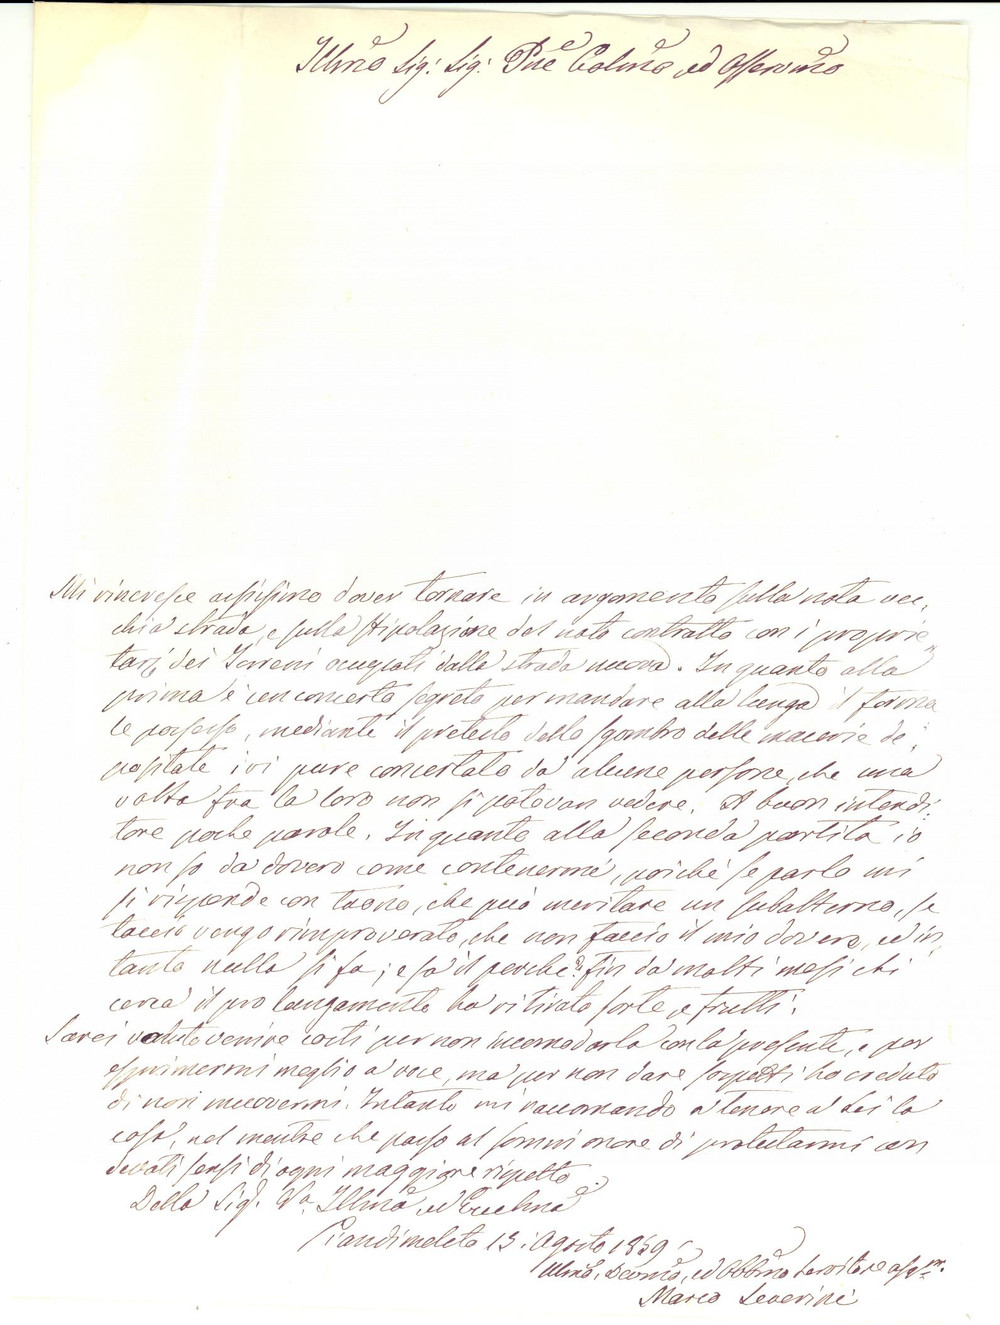 Illmo Sig: Sig: Pne Colmo ed Osservmo
Mi rincresce assissimo dover tornare in argomento sulla nota vec,
chia strada, e sulla stipolazione del noto contratto con i proprie
tarj dei Terreni occupati dalla strada nuova. In quanto alla
prima è un concerto segreto per mandare alla lunga il forma
le possesso, mediante il pretesto dello sgombro delle macerie de,
positate ivi pure concertato da alcune persone, che una
volta fra la loro non si potevan vedere. A buon intendi,
tore poche parole. In quanto alla seconda partita io
non so da dovero come contenermi, poichè se parlo mi
si risponde con tuono, che può meritare un subalterno, se
taccio vengo rimproverato, che non faccio il mio dovere, ed in,
tanto nulla si fa; e sa il perchè? fin da molti mesi chi
cerca il prolungamento ha ritirato forte, e frutti.
Sarei voluto venire costì per non incomodarla con la presente, e per
esprimermi meglio a voce, ma per non dare sospetti ho creduto
di non muovermi. Intanto mi raccomando a tenere a Lei la
cosa, nel mentre che passo al sommo onore di protestarmi con
devoti sensi di ogni maggiore rispetto
Della Sig. Va. Illma, ed Eccelma
Piandimeleto 13. Agosto 1859
Umo, Devmo, ed Obbmo Servitore
Marco Severini